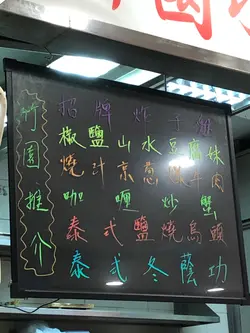 竹園推介
招牌炸子雞
椒鹽山水豆腐妹
燒汁京蔥爆牛肉
咖喱炒蟹
泰式鹽燒烏頭
泰式冬蔭功